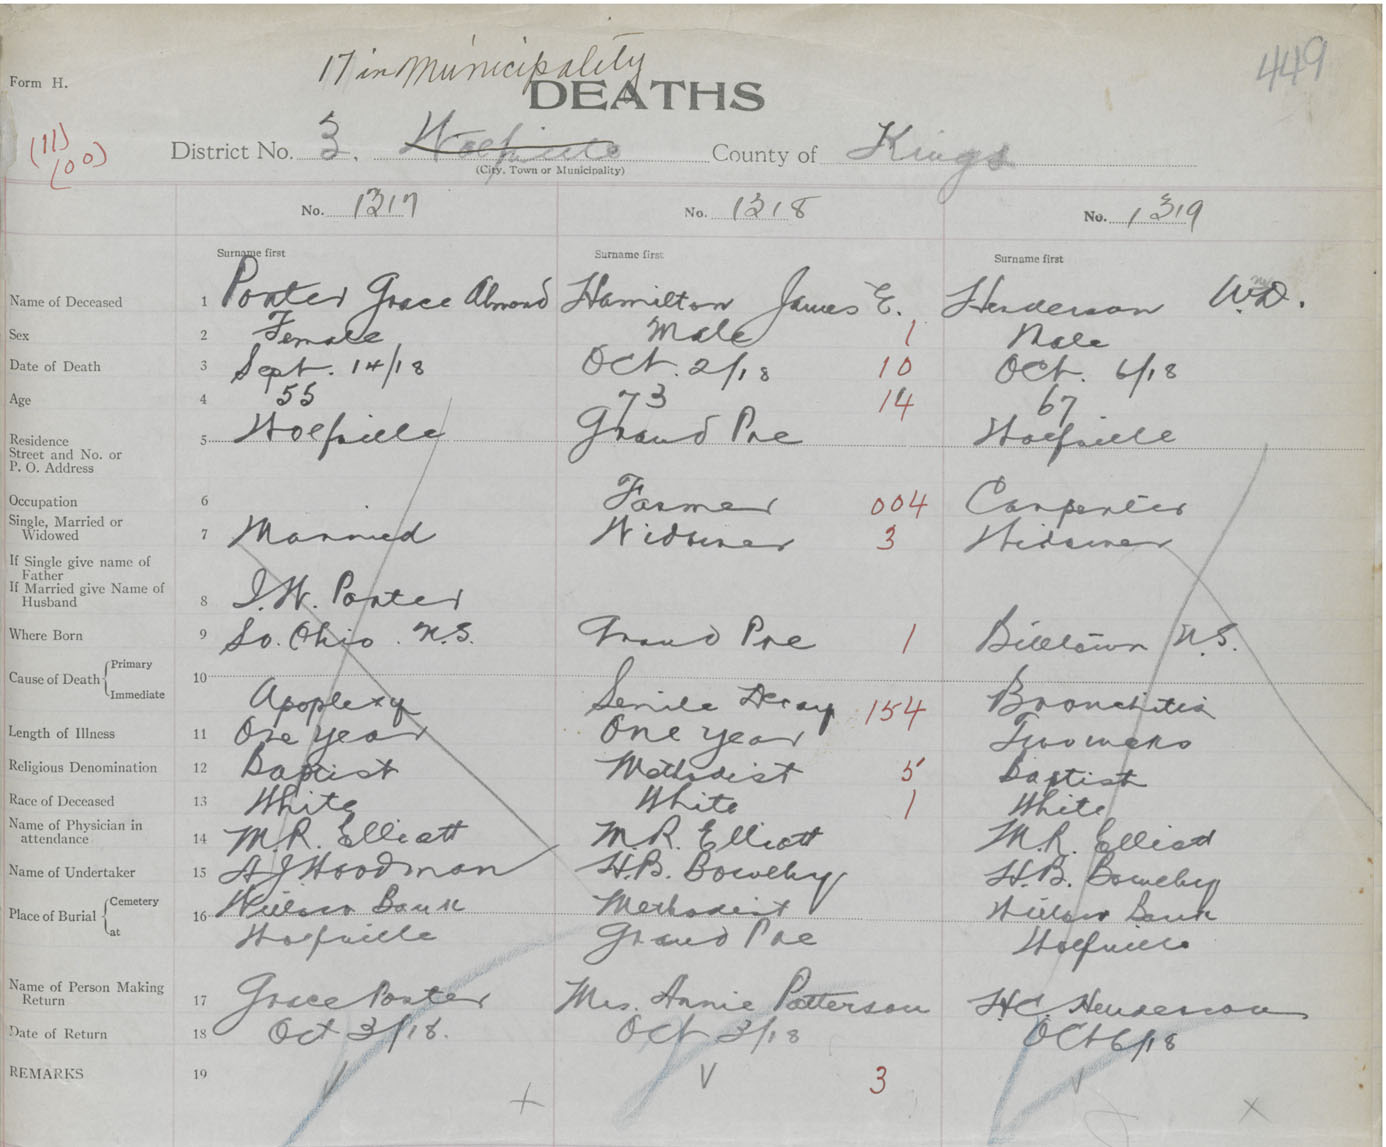 17 in Municipality
449
Form H.
DEATHS
(11)
(00)
District No. 3. Wolfville County of Kings
(City, Town or Municipality)
No. 1317 No. 1318 No. 1319
Surname first Surname first Surname first
Name of Deceased 1 Porter Grace Almond Hamilton James E. Henderson W.D.
Sex 2 Female Male 1 Male
Date of Death 3 Sept. 14/18 Oct. 2/18 10 Oct. 6/18
Age 4 55 73 14 67
Residence
Street and No. or
P. O. Address
5 Wolfville Grand Pre Wolfville
Occupation 6 Farmer 004 Carpenter
Single, Married or
Widowed 7 Married Widower 3 Widower
If Single give name of
Father
If Married give Name of
Husband 8 I.W. Porter
Where Born 9 So. Ohio. N.S. Grand Pre 1 Billtown N.S.
Cause of Death Primary
Immediate
10 Apoplexy Senile Decay 154 Bronchitis
Length of Illness 11 One year One year Two weeks
Religious Denomination 12 Baptist Methodist 5 Baptist
Race of Deceased 13 White White 1 White
Name of Physician in
attendance 14 M.R. Elliott M.R. Elliott M.R. Elliott
Name of Undertaker 15 A J Woodman H.B. Bowelby H.B. Bowelby
Place of Burial Cemetery
at
16 Willow Bank Methodist Willow Bank
Wolfville Grand Pre Wolfville
Name of Person Making
Return 17 Grace Porter Mrs. Annie Patterson H.C. Henderson
Date of Return 18 Oct 3/18. Oct 3/18 Oct 6/18
REMARKS 19 V V 3 V
+ x